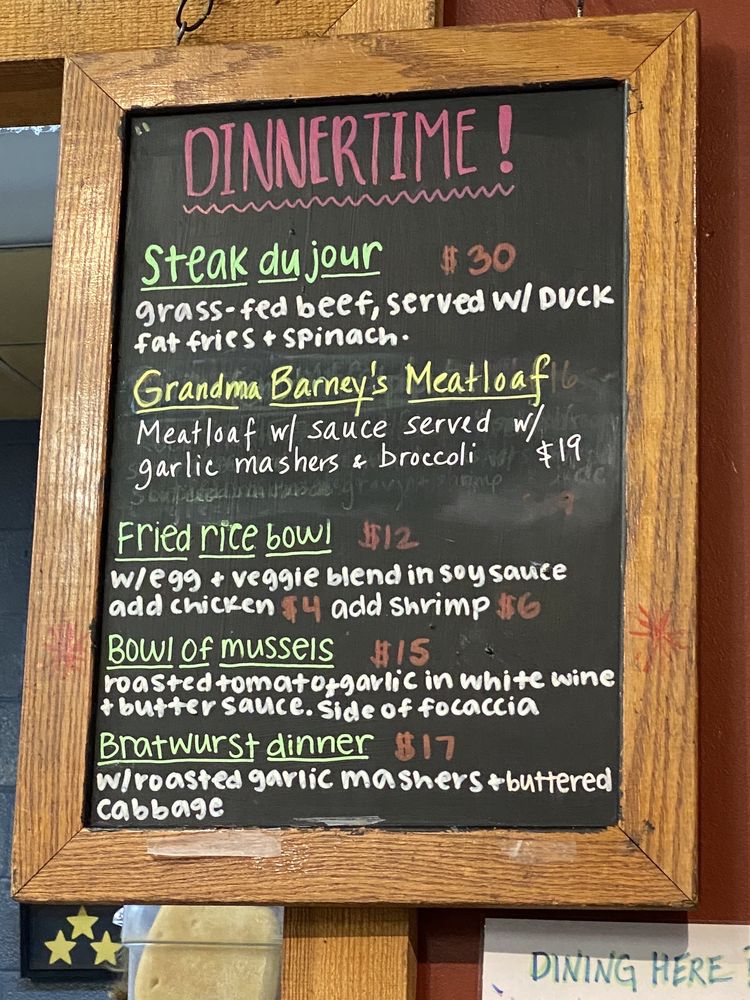 DINNERTIME!
Steak du jour $30
grass-fed beef, served w/ DUCK
fat fries + spinach.
Grandma Barney's Meatloaf
Meatloaf w/ sauce served w/
garlic mashers & broccoli $19
Fried rice bowl $12
w/egg + veggie blend in soy sauce
add chicken $4 add shrimp $6
Bowl of mussels $15
roasted tomato, garlic in white wine
+ butter sauce. Side of focaccia
Bratwurst dinner $17
w/roasted garlic mashers + buttered
cabbage
DINING HERE